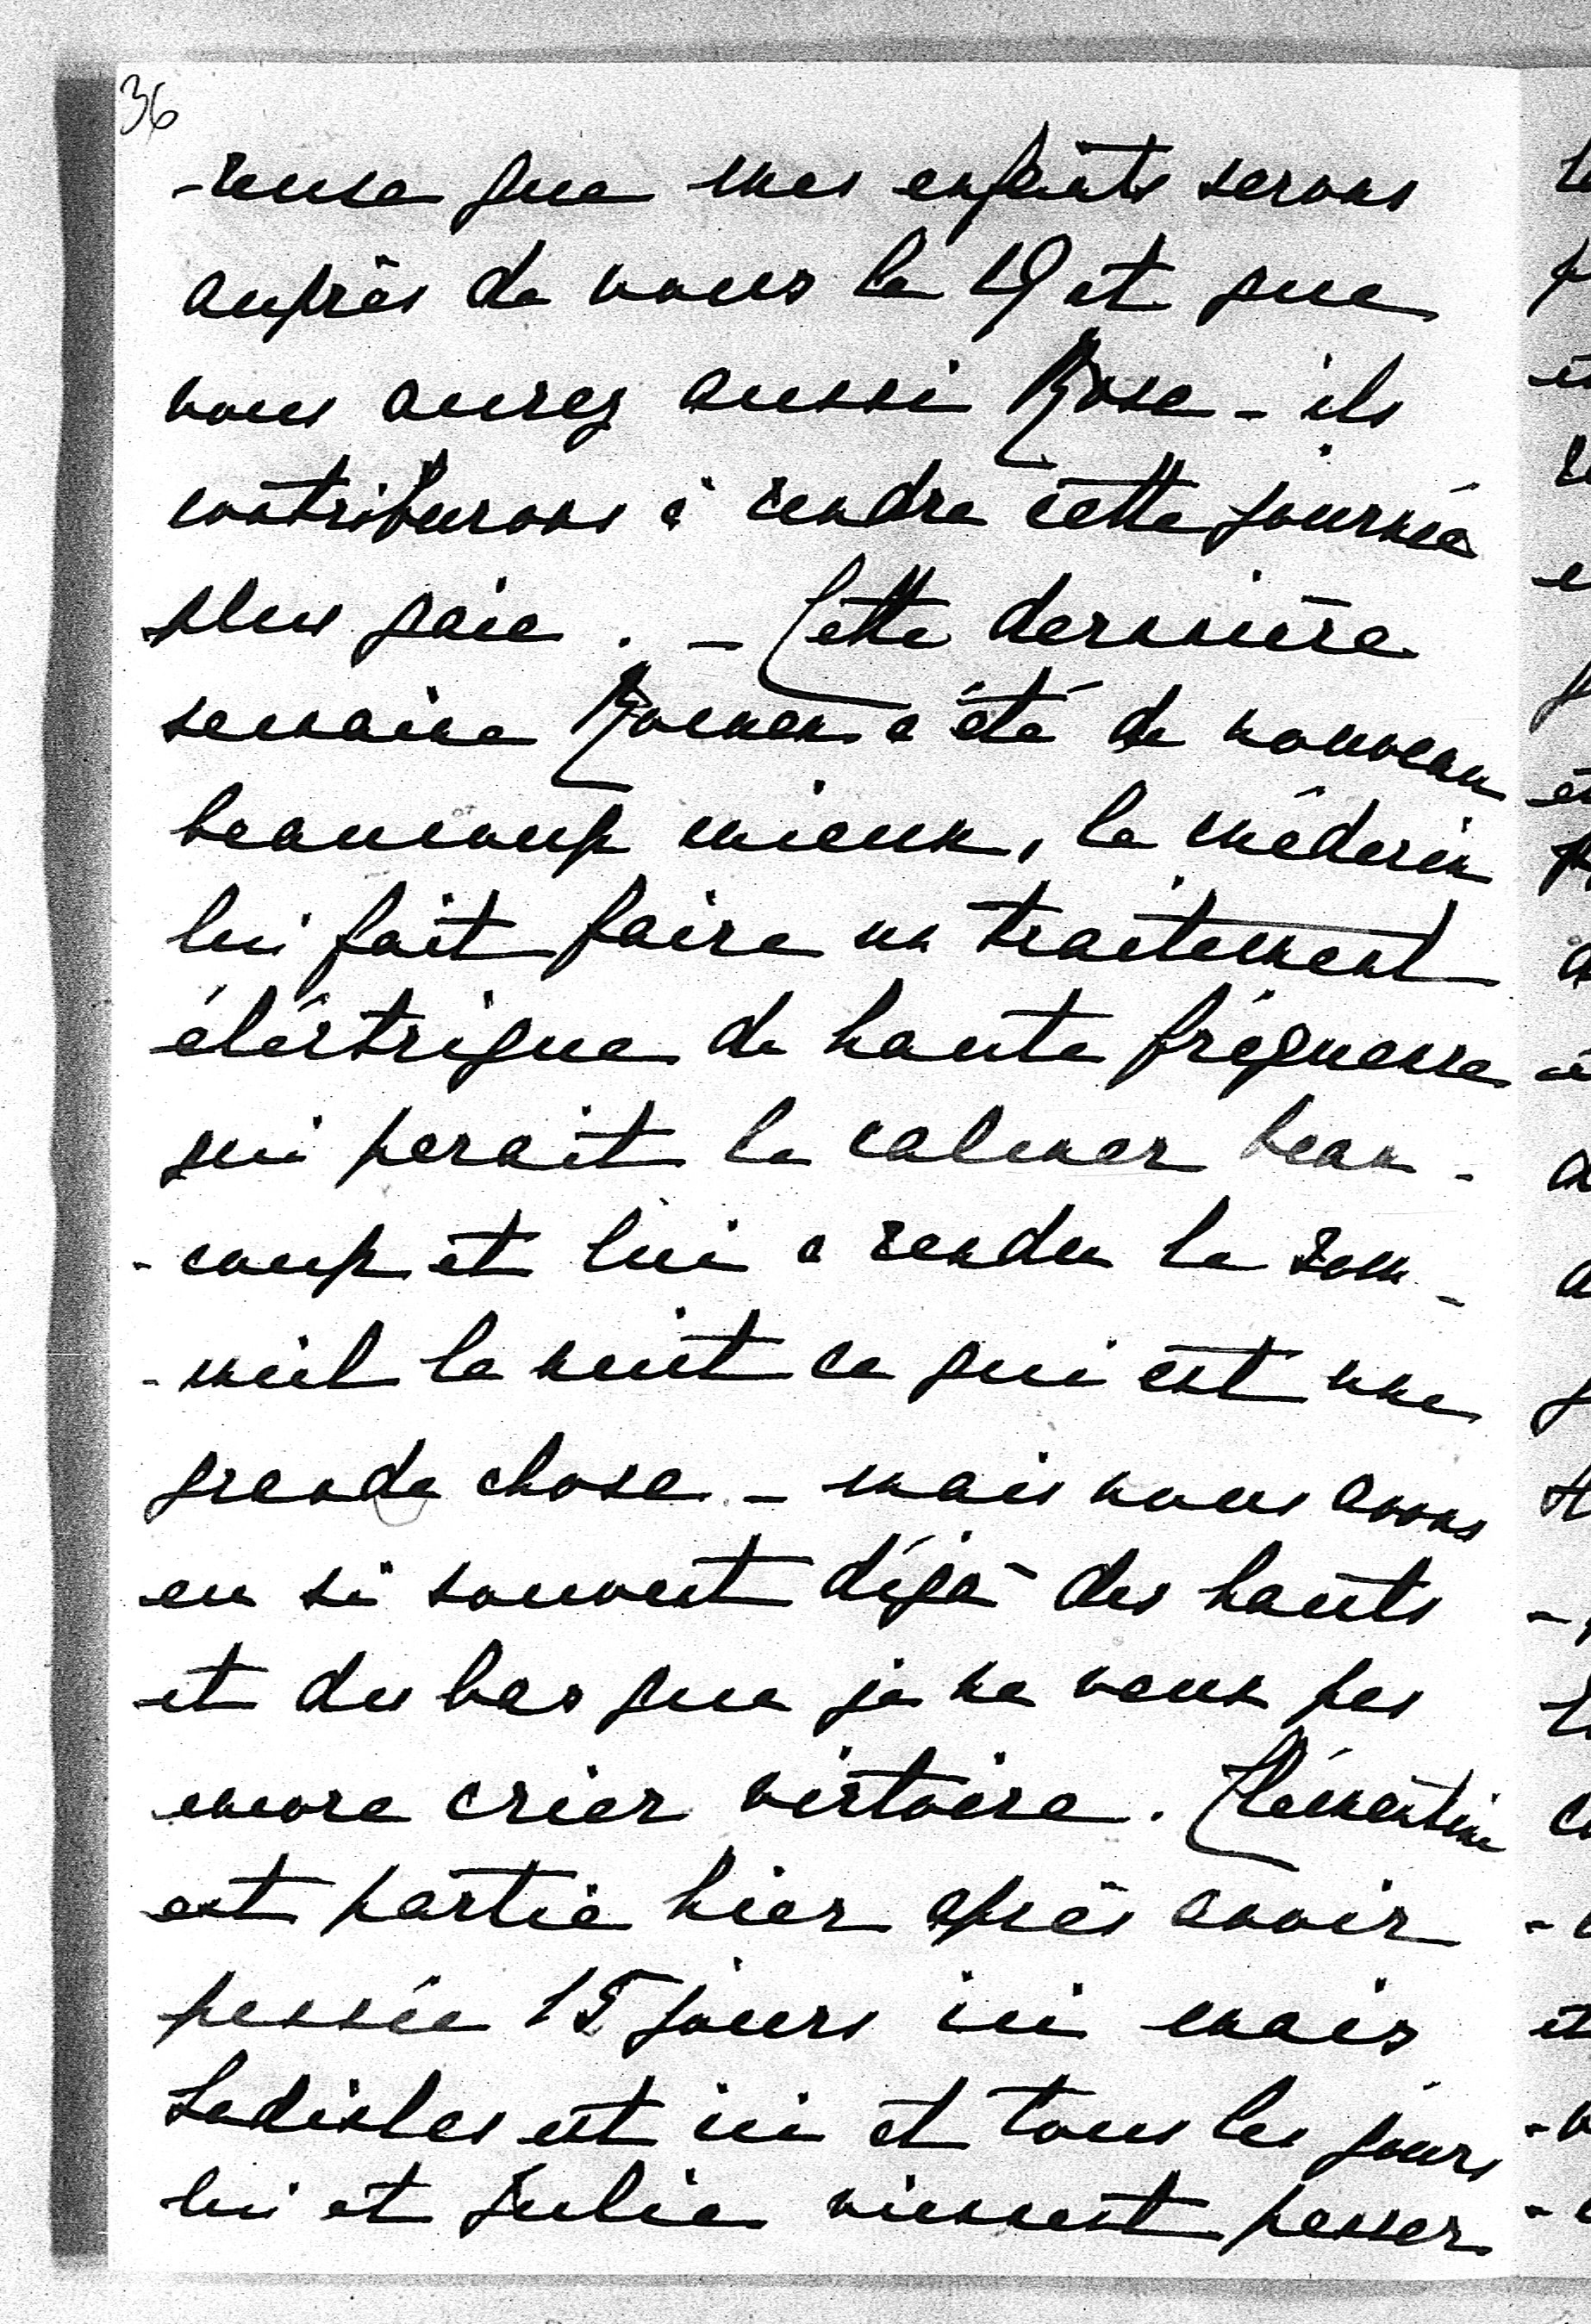 36
-reuse que mes enfants serons
auprès de vous le 19 et que
vous aurez aussi Rose - ils
contriburons à rendre cette journée
plus gaie. - Cette dernière
semaine Roman a été de nouveau
beaucoup mieux, le médecin
lui fait faire un traitement
éléctrique de haute fréquence
qui parait le calmer beau-
-coup et lui a rendu le som-
-meil la nuit ce qui est une
grande chose - mais nous avons
eu si souvent déjà des hauts
et des bas que je ne veux pas
encore crier victoire. Clémentine
est partie hier après avoir
passée 15 jours ici mais
Ladislas est ici et tous les jours
lui et Julie viennent passer